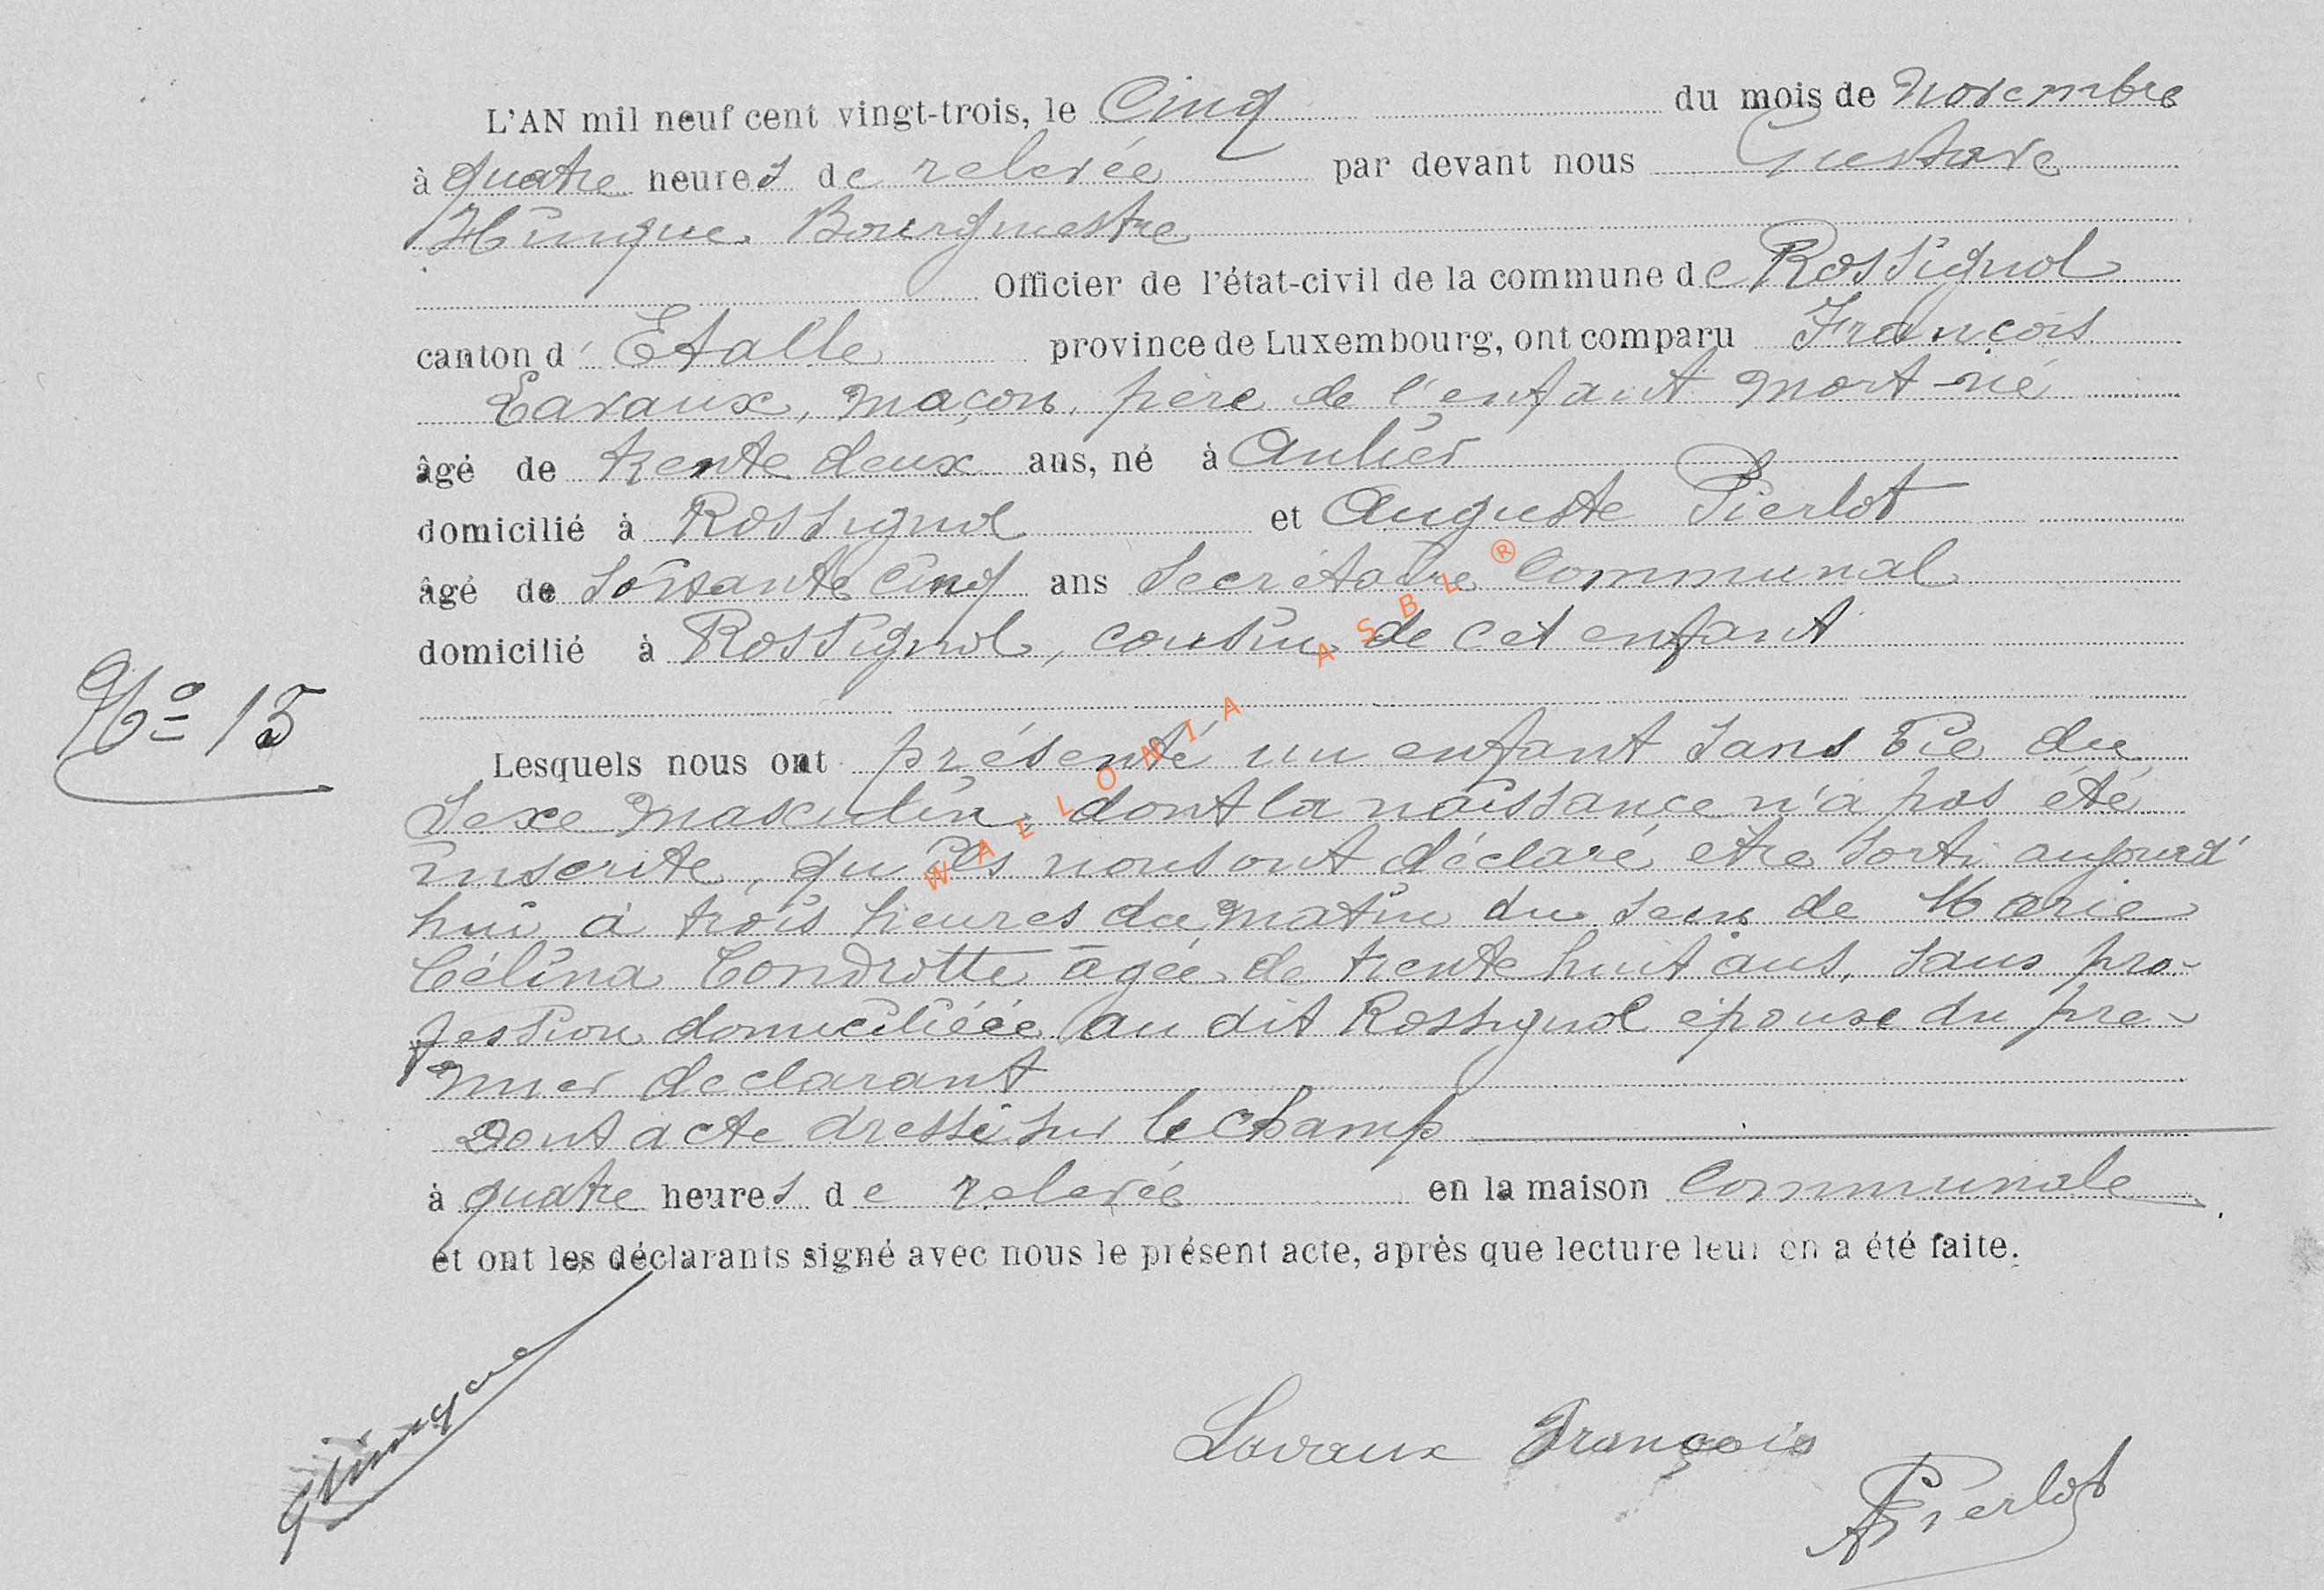 L'AN mil neuf cent vingt-trois, le Cinq du mois de Novembre
à quatre heures de relevée par devant nous Gustave
Hinque, Bourgmestre
Officier de l'état-civil de la commune de Rossignol
canton d' Etalle province de Luxembourg, ont comparu François
Lavaux, maçon, père de l'enfant mort-né
âgé de trente deux ans, né à Anlier
domicilié à Rossignol et Auguste Pierlot
âgé de soixante cinq ans Secrétaire Communal
domicilié à Rossignol, cousin de cet enfant
No 15
Lesquels nous ont présenté un enfant sans vie du
sexe masculin, dont la naissance n'a pas été
inscrite, qu'ils nous ont déclaré être sorti aujourd'
hui à trois heures du matin du sein de Marie
Célina Condrotte âgée de trente huit ans, sans pro-
fession domiciliéée au dit Rossignol épouse du pre-
mier declarant
Dont acte dressé sur le champ
à quatre heures de relevée en la maison Communale
et ont les déclarants signé avec nous le présent acte, après que lecture leur en a été faite.
GHinque
Lavaux François
APierlot
WALLONIA ASBL ®